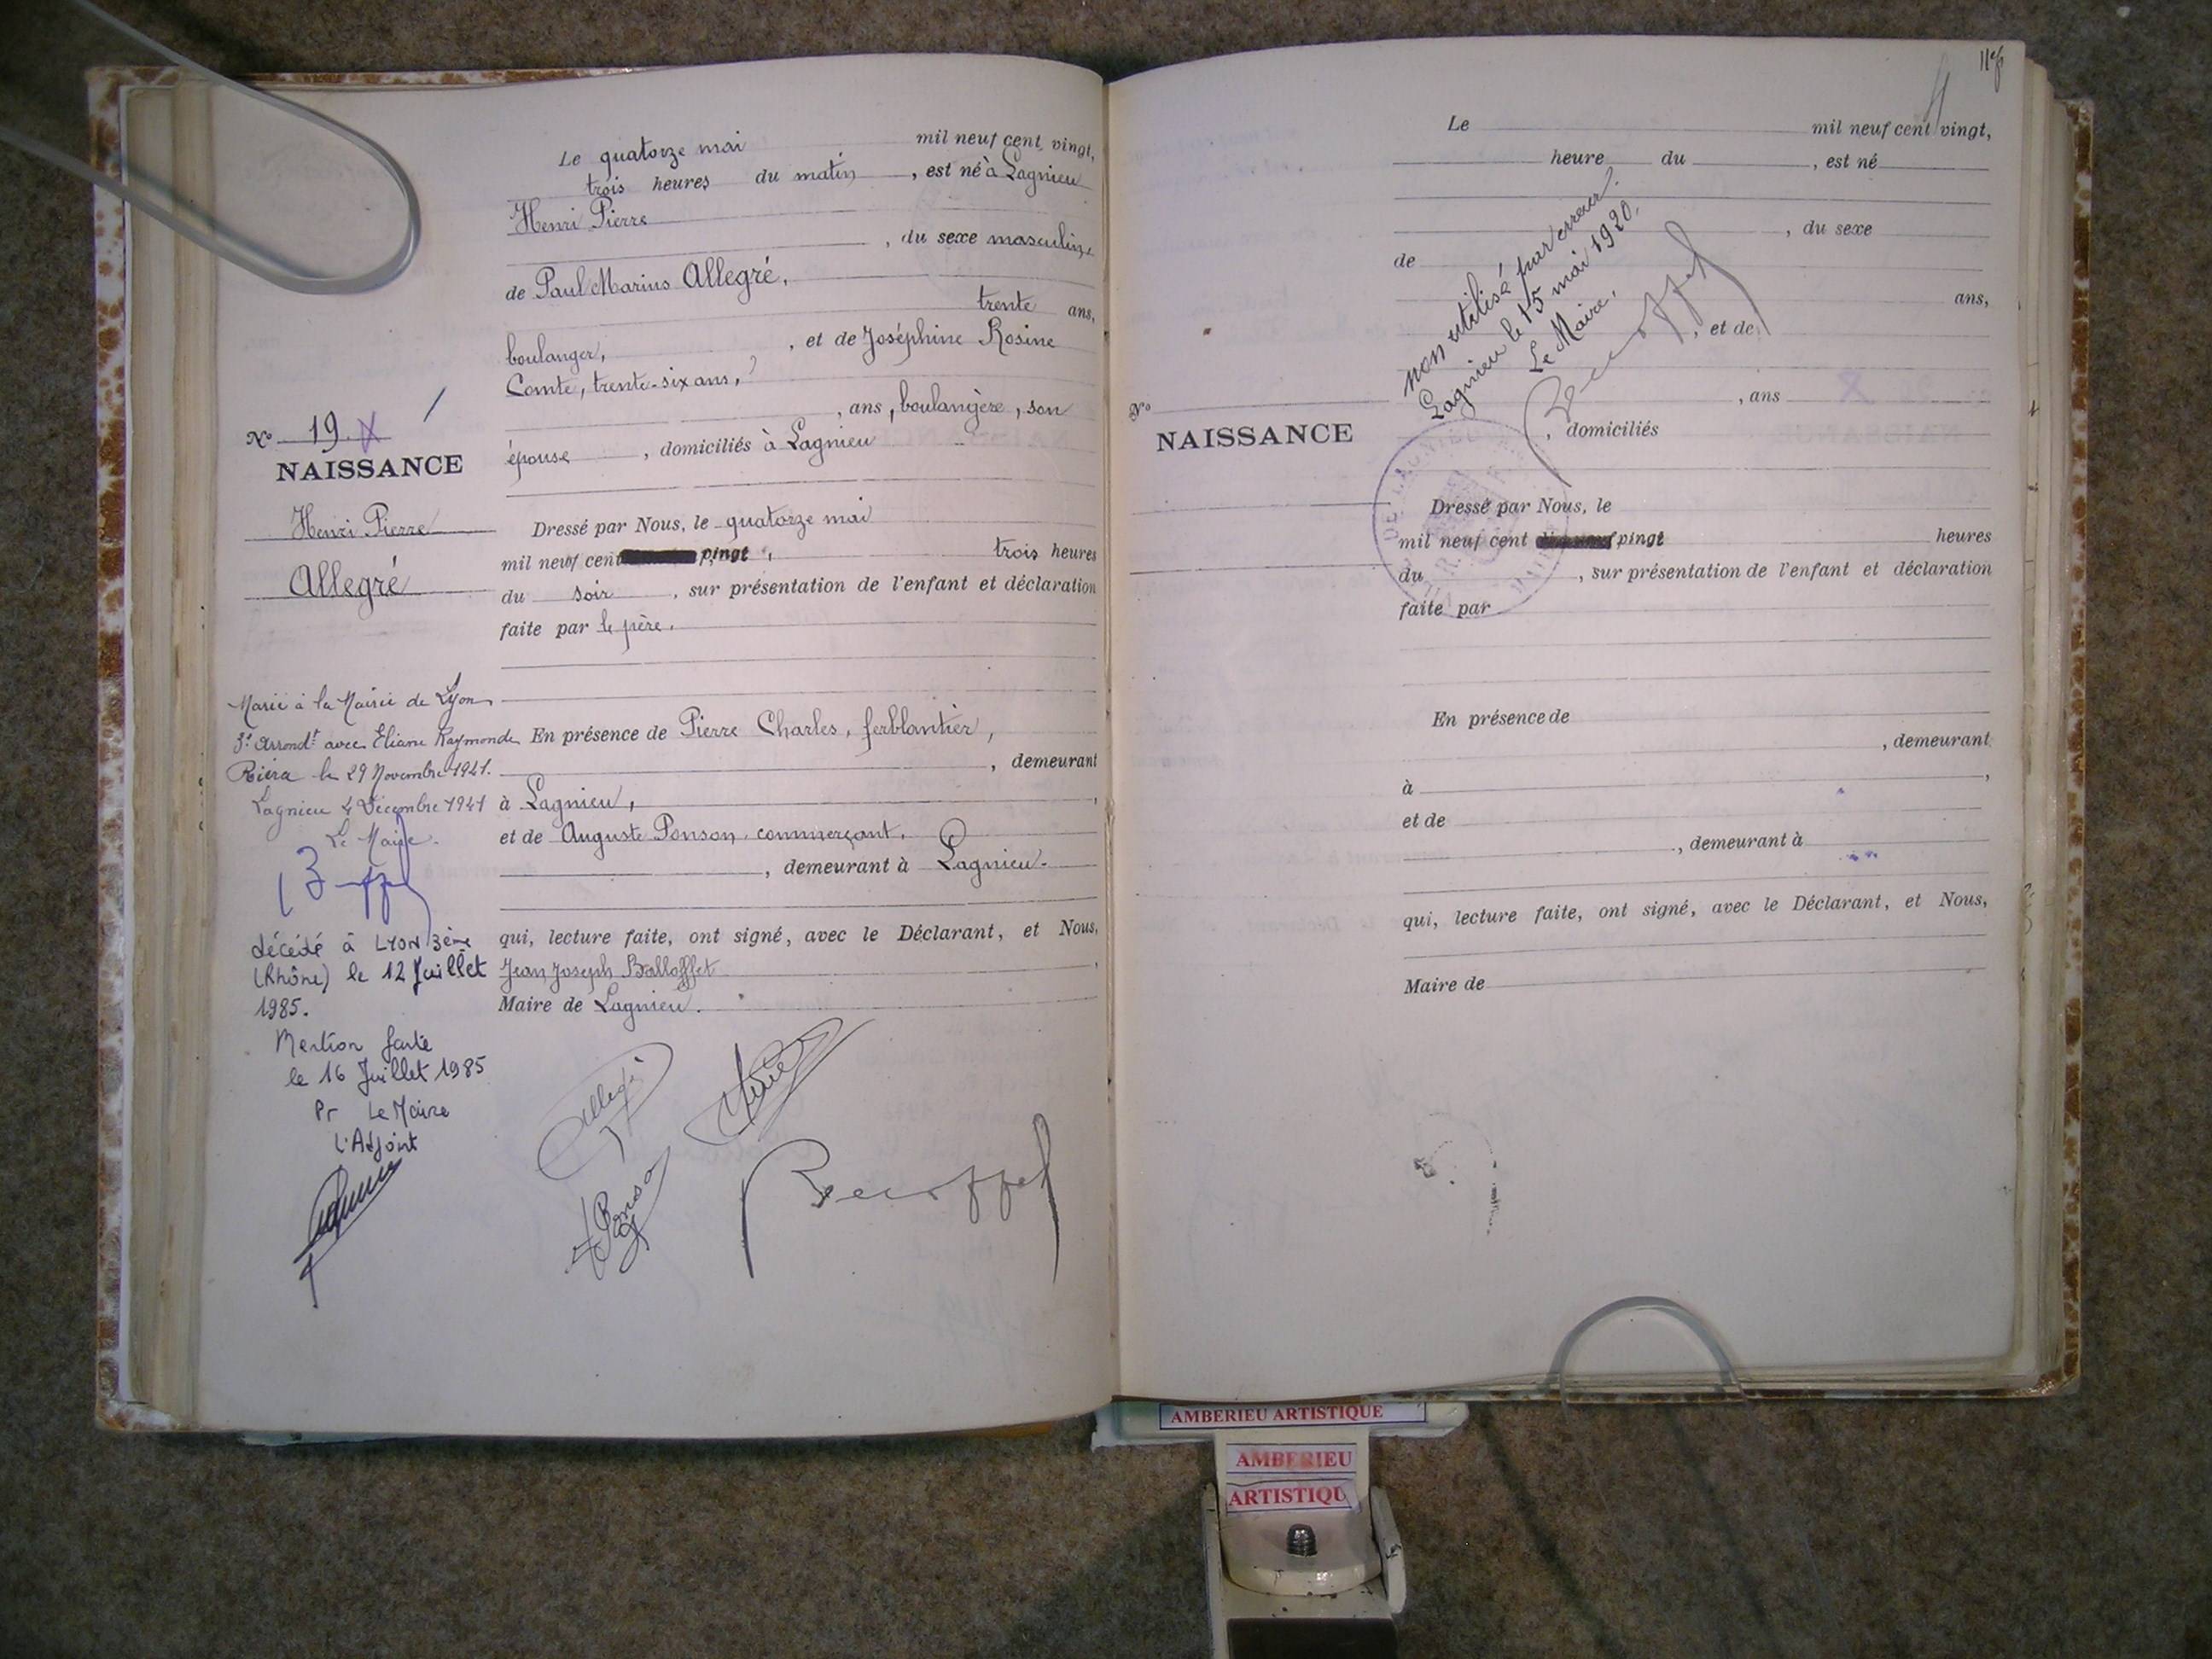 Le quatorze mai mil neuf cent vingt,
trois heures du matin, est né à Lagnieu
Henri Pierre
, du sexe masculin,
de Paul Marius Allegré,
trente ans,
boulanger, , et de Joséphine Rosine
Comte, trente-six ans,
, ans, boulangère, son
épouse , domiciliés à Lagnieu
Nº 19.
NAISSANCE
Henri Pierre
Allegré
Dressé par Nous, le quatorze mai
mil neuf cent vingt, trois heures
du soir , sur présentation de l'enfant et déclaration
faite par le père.
En présence de Pierre Charles, ferblantier,
, demeurant
à Lagnieu, ,
et de Auguste Ponson, commerçant,
, demeurant à Lagnieu.
qui, lecture faite, ont signé, avec le Déclarant, et Nous,
Jean Joseph Balloffet ,
Maire de Lagnieu.
Marié à la Mairie de Lyon
3e Arrondt avec Eliane Raymonde
Riéra le 29 Novembre 1941.
Lagnieu 4 Décembre 1941
Le Maire.
décédé à LYON 3ème
(Rhône) le 12 Juillet
1985.
Mention faite
le 16 Juillet 1985
Pr Le Maire
L'Adjoint
Allegré
A Ponson
Le mil neuf cent vingt,
heure du , est né
, du sexe
de
ans,
, et de
, ans
, domiciliés
non utilisé par erreur.
Lagnieu le 15 mai 1920.
Le Maire,
Nº
NAISSANCE
Dressé par Nous, le
mil neuf cent vingt heures
du , sur présentation de l'enfant et déclaration
faite par
En présence de
, demeurant
à ,
et de
, demeurant à
qui, lecture faite, ont signé, avec le Déclarant, et Nous,
Maire de
AMBERIEU ARTISTIQUE
AMBERIEU
ARTISTIQU